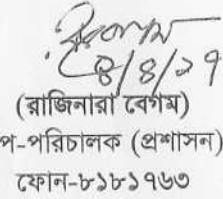 ৪/৪/২৭
(রাজিনারা বেগম)
প-পরিচালক (প্রশাসন)
ফোন-৮১৮১৭৬৩